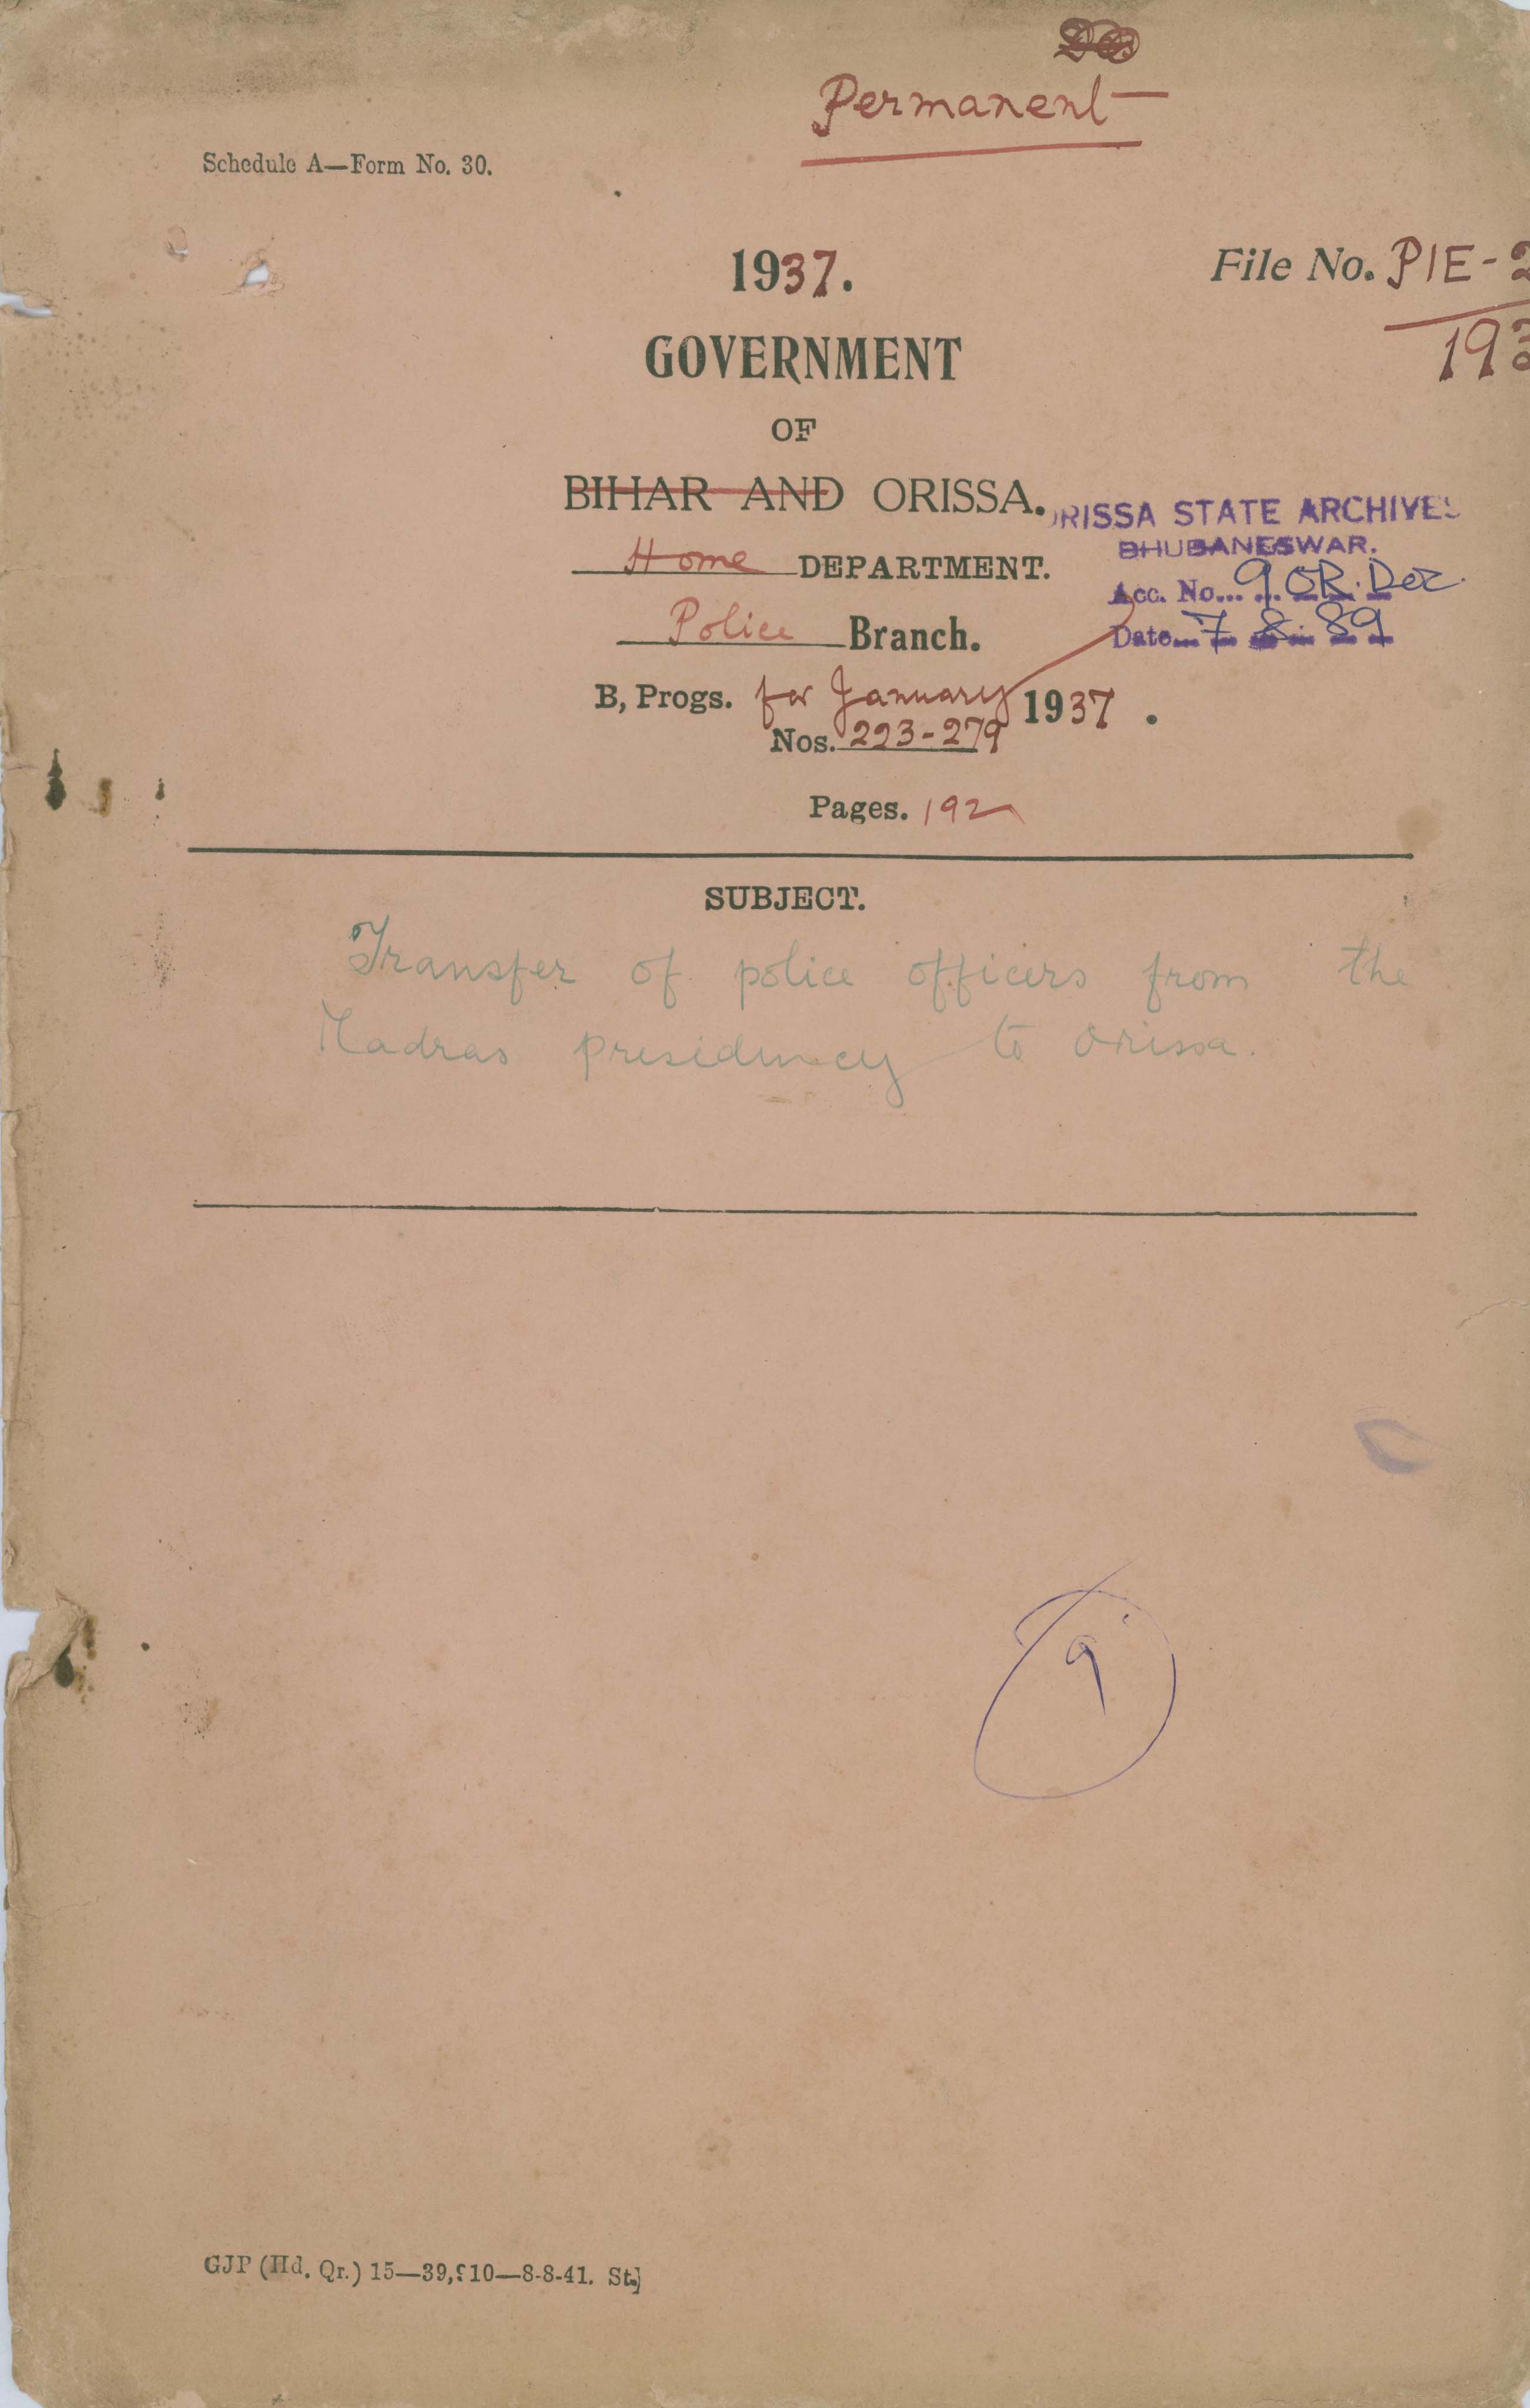 Permanent
Schedule A—Form No. 30.
1937.
File No. PIE-
193
GOVERNMENT
OF
BIHAR AND ORISSA.
ORISSA STATE ARCHIVES
BHUBANESWAR.
Home DEPARTMENT.
Acc. No... 9 OR. Doc.
Police Branch.
Date... 7 8 89
B, Progs. for January 1937.
Nos. 223-279
Pages. 192
SUBJECT.
Transfer of police officers from the
Madras presidency to Orissa.
9
GJP (Hd. Qr.) 15—39,910—8-8-41. St.]